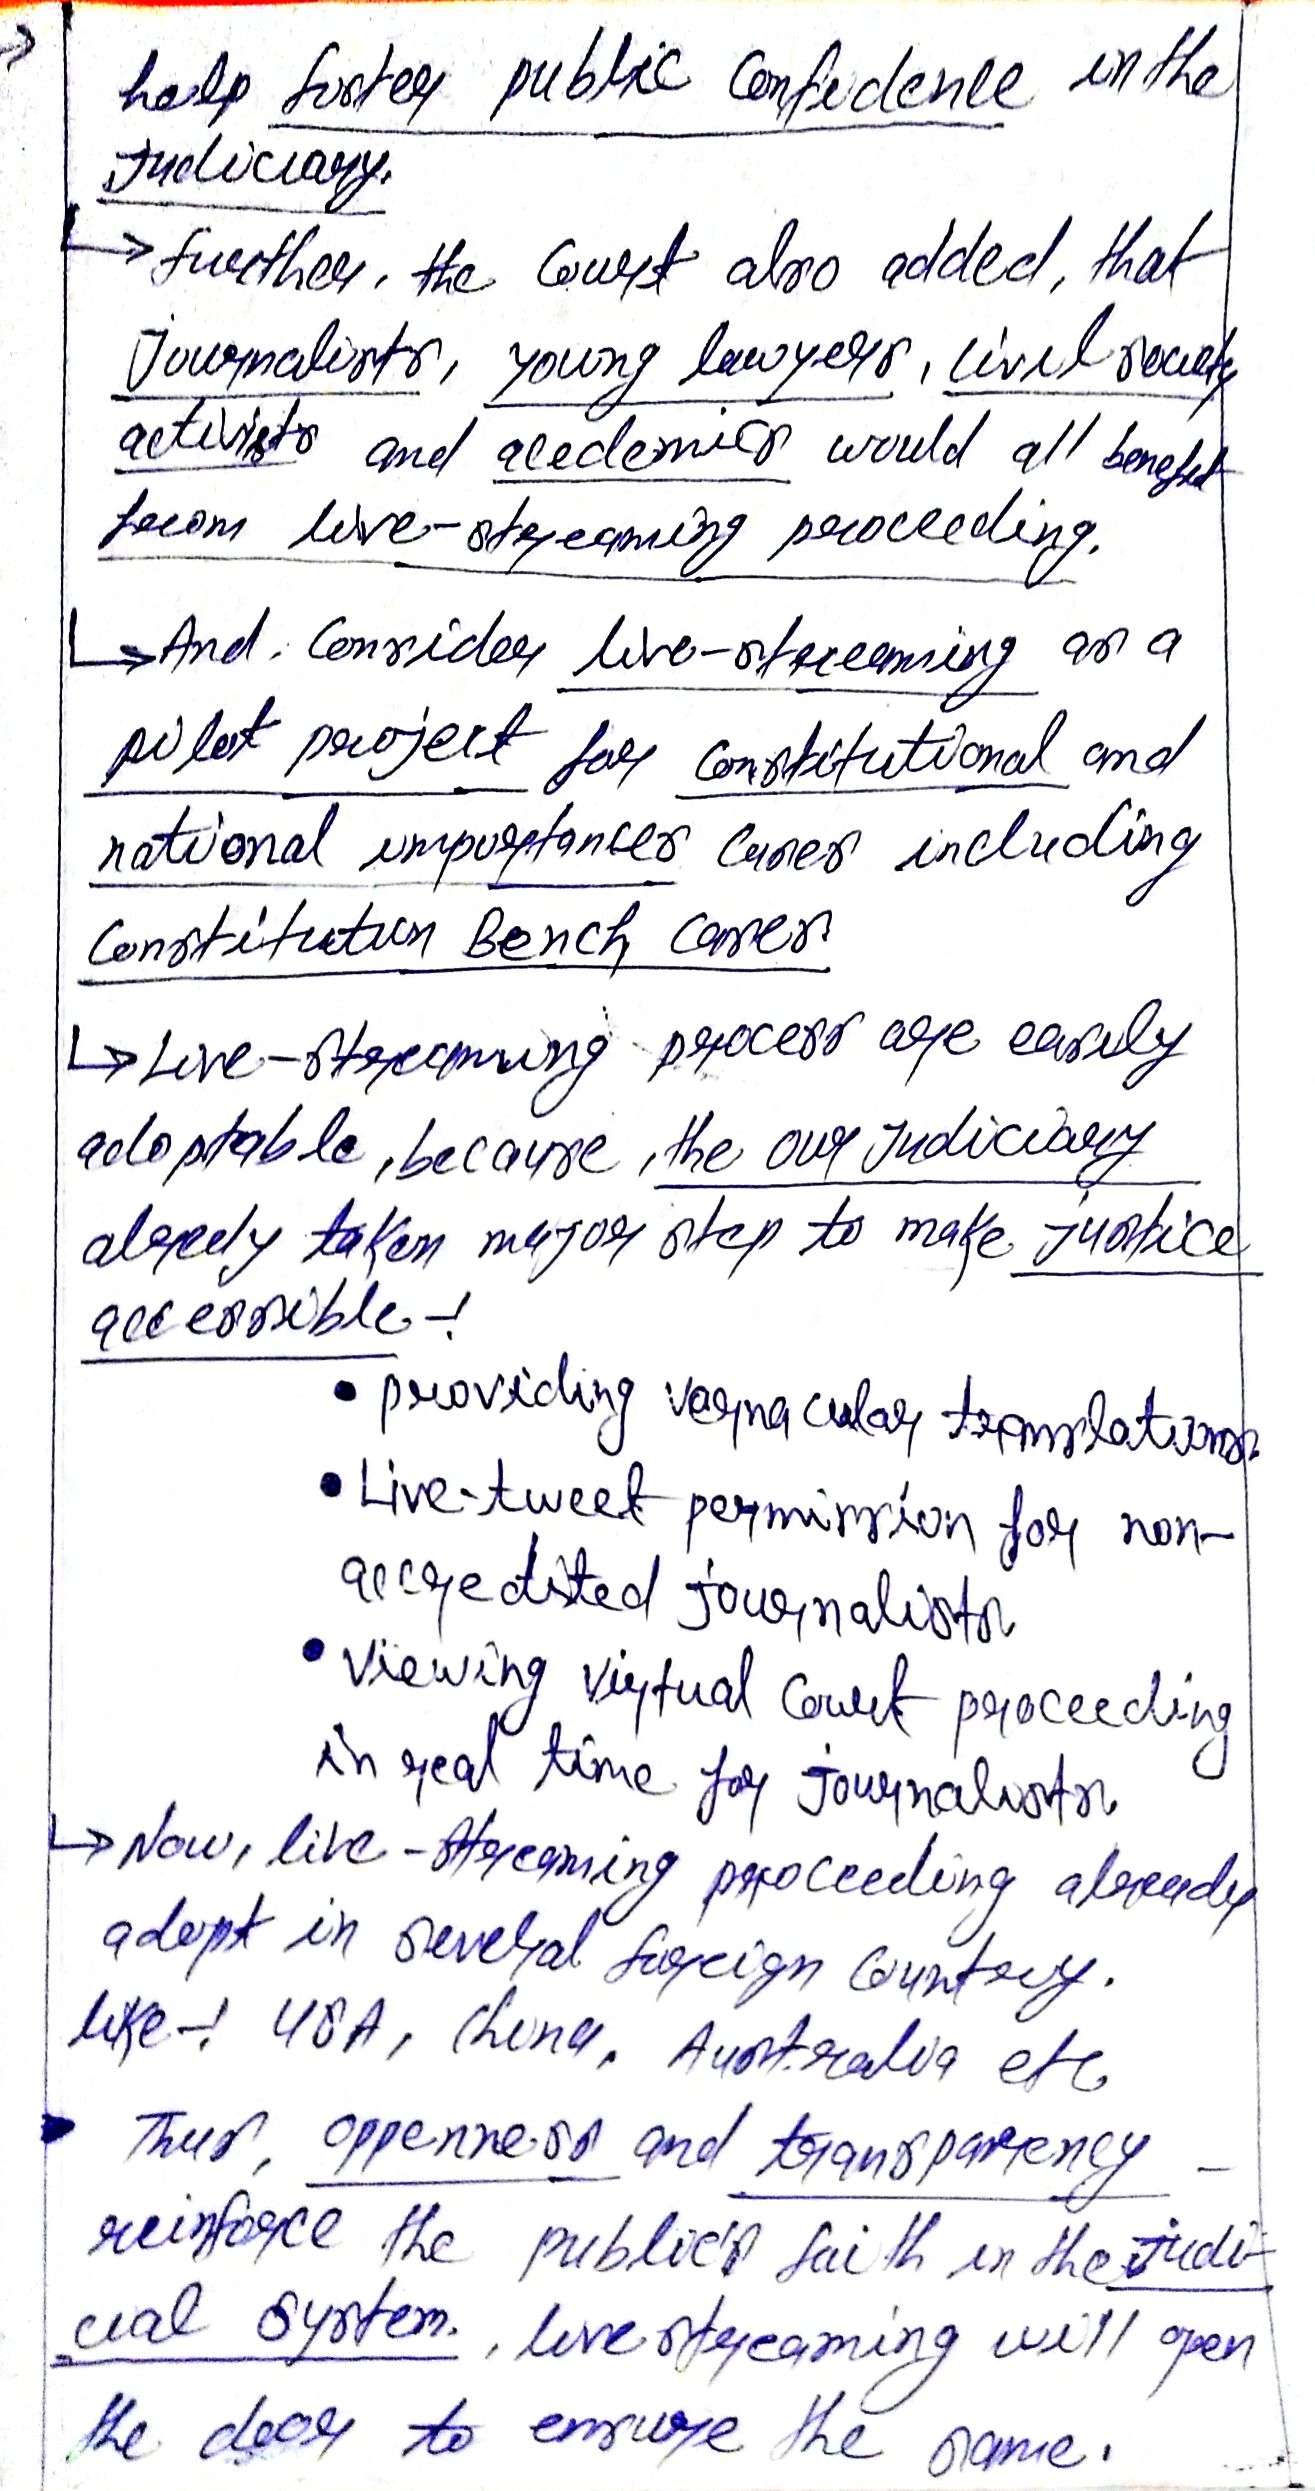 help foster public confidence in the
Judiciary.
→ further, the Court also added, that
Journalists, young lawyers, civil society
activists and acedemics would all benefit
from live-streaming proceeding.
→ And. Consider live-streaming as a
pilot project for constitutional and
national importances cases including
Constitution Bench cases.
→ Live-streaming process are easily
adoptable, because, the our Judiciary
already taken major step to make justice
accessible -:
• providing vernacular translations.
• Live-tweet permission for non-
accredited journalists
• Viewing virtual Court proceeding
in real time for journalists.
→ Now, live-streaming proceeding already
adopt in several foreign Country.
like -: USA, China, Australia etc
• Thus, oppenness and transparency -
reinforce the public's faith in the judi-
cial system. , live streaming will open
the door to ensure the same.